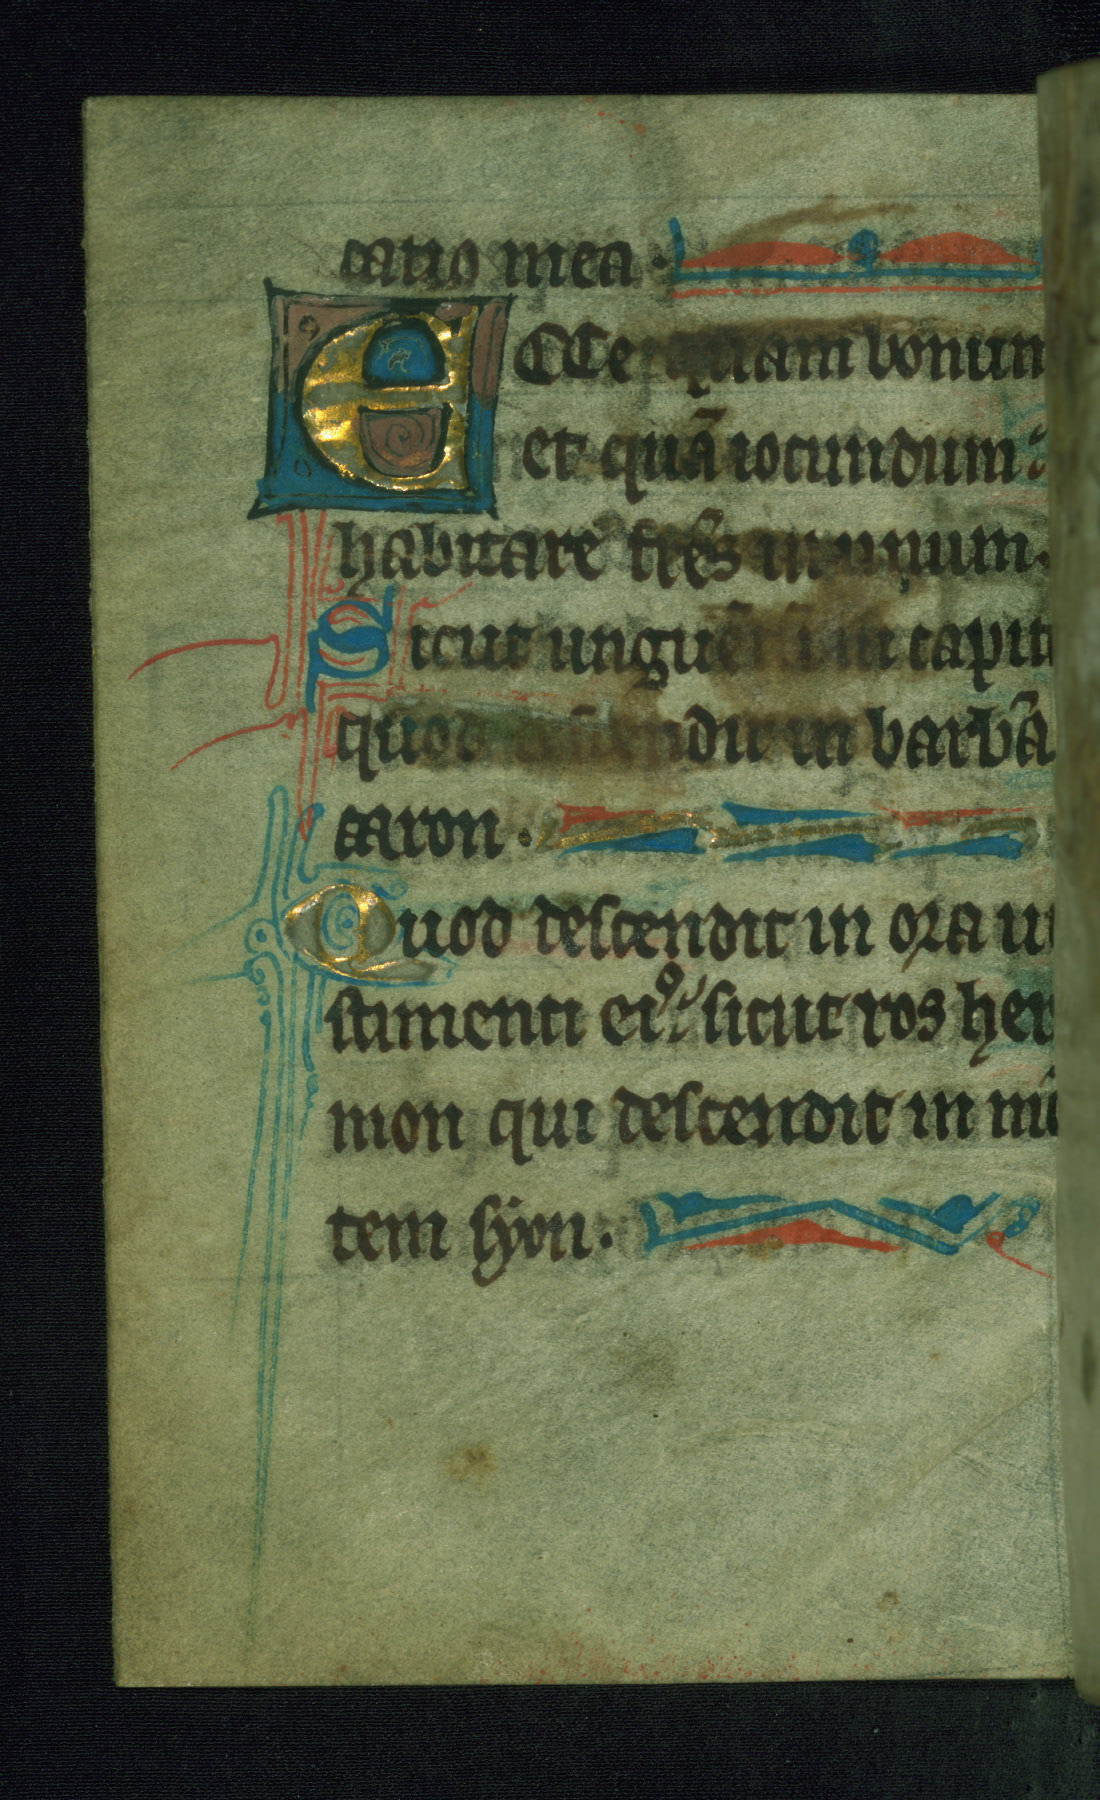 catio mea.
ECce quam bonum
et quā iocundum:
habitare fr̄es in unum.
Sicut unguē in capit
quod descendit in barbā
aaron.
Quod descendit in ora ue
stimenti eiꝰ: sicut ros her
mon qui descendit in mō
tem syon.